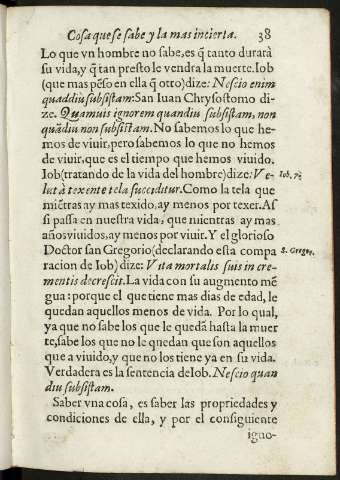 Cosa que se sabe y la mas incierta. 38
Lo que vn hombre no sabe, es q̃ tanto durarà
su vida, y q̃ tan presto le vendra la muerte. Iob
(que mas pẽso en ella q̃ otro) dize: Nescio enim
quaddiu subsistam: San Iuan Chrysostomo di-
ze. Quamuis ignorem quandiu subsistam, non
quãdiu non subsistam. No sabemos lo que he-
mos de viuir, pero sabemos lo que no hemos
de viuir, que es el tiempo que hemos viuido.
Iob (tratando de la vida del hombre) dize: Ve- Iob. 7.
lut à texente tela succiditur. Como la tela que
miẽtras ay mas texido, ay menos por texer. As
si passa en nuestra vida, que mientras ay mas
años viuidos, ay menos por viuir. Y el glorioso
Doctor san Gregorio (declarando esta compa S. Gregor.
racion de Iob) dize: Vita mortalis suis in cre-
mentis decrescit. La vida con su augmento mẽ
gua: porque el que tiene mas dias de edad, le
quedan aquellos menos de vida. Por lo qual,
ya que no sabe los que le quedã hasta la muer
te, sabe los que no le quedan que son aquellos
que a viuido, y que no los tiene ya en su vida.
Verdadera es la sentencia de Iob. Nescio quan
diu subsistam.
Saber vna cosa, es saber las propriedades y
condiciones de ella, y por el consiguiente
igno-